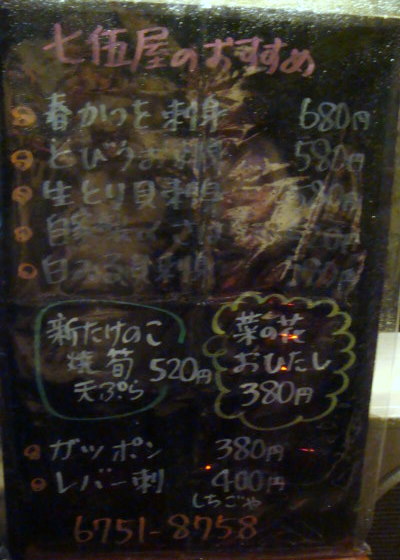 七伍屋のおすすめ
春かつを刺身 680円
とびうお刺身 580円
生とり貝刺身 580円
円
白みる貝刺身
新たけのこ
焼筍
天ぷら
520円
菜の花
おひたし
380円
ガッポン 380円
レバー刺 400円
しちごや
6751-8758